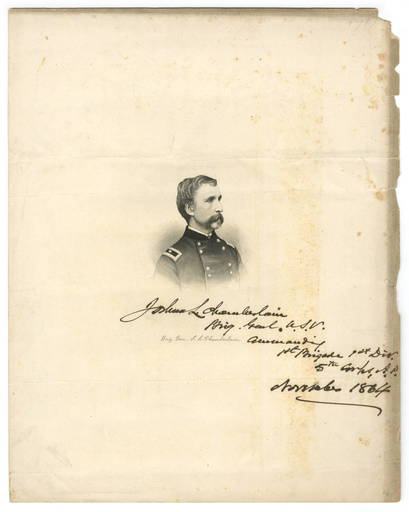 Joshua L. Chamberlain
Brig. Genl. U.S.V.
Brig. Gen. J. L. Chamberlain
Commanding
1st Brigade 1st Div.
5th Corps, A. P.
November 1864